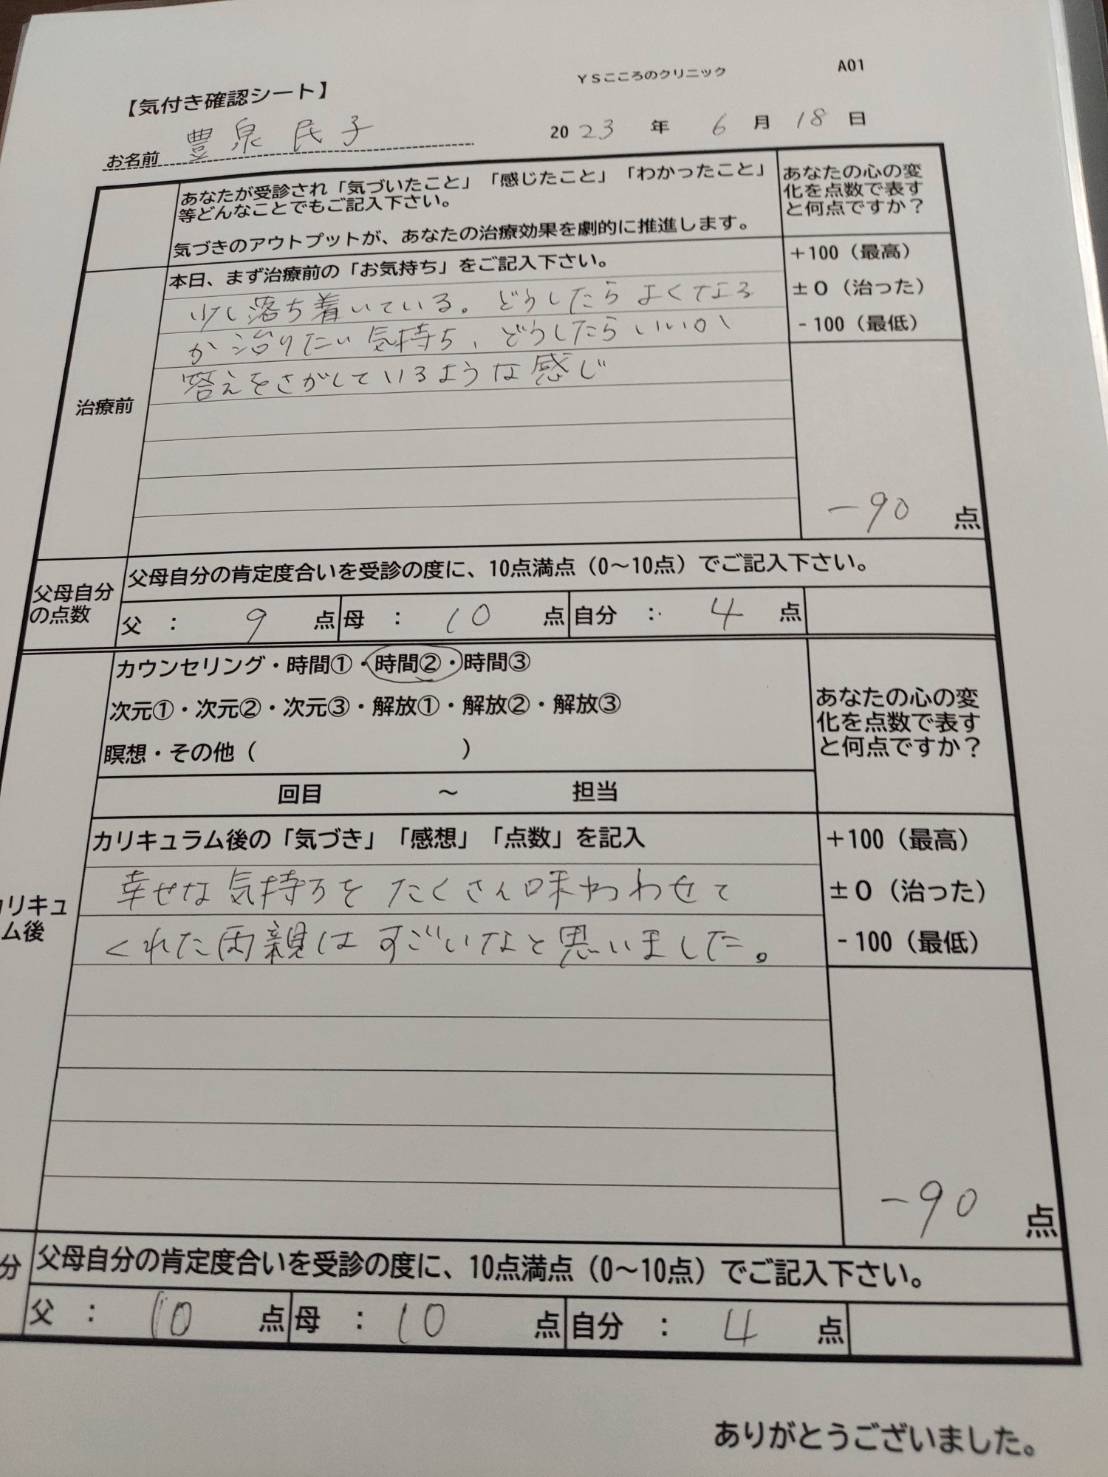 YSこころのクリニック
A01
【気付き確認シート】
お名前 豊泉 民子
2023 年 6 月 18 日
あなたが受診され「気づいたこと」「感じたこと」「わかったこと」
等どんなことでもご記入下さい。
気づきのアウトプットが、あなたの治療効果を劇的に推進します。
あなたの心の変
化を点数で表す
と何点ですか?
治療前
本日、まず治療前の「お気持ち」をご記入下さい。
少し落ち着いている。どうしたらよくなる
か 治りたい 気持ち、どうしたらいいのか
答えをさがしているような感じ
+100(最高)
±0(治った)
-100(最低)
-90 点
父母自分
の点数
父母自分の肯定度合いを受診の度に、10点満点(0~10点)でご記入下さい。
父 : 9 点 母 : 10 点 自分 : 4 点
カウンセリング・時間①・時間②・時間③
次元①・次元②・次元③・解放①・解放②・解放③
瞑想・その他( )
回目 ~ 担当
あなたの心の変
化を点数で表す
と何点ですか?
リキュ
ム後
カリキュラム後の「気づき」「感想」「点数」を記入
幸せな気持ちを たくさん味わわせて
くれた両親は すごいなと思いました。
+100(最高)
±0(治った)
-100(最低)
-90 点
分
父母自分の肯定度合いを受診の度に、10点満点(0~10点)でご記入下さい。
父 : 10 点 母 : 10 点 自分 : 4 点
ありがとうございました。